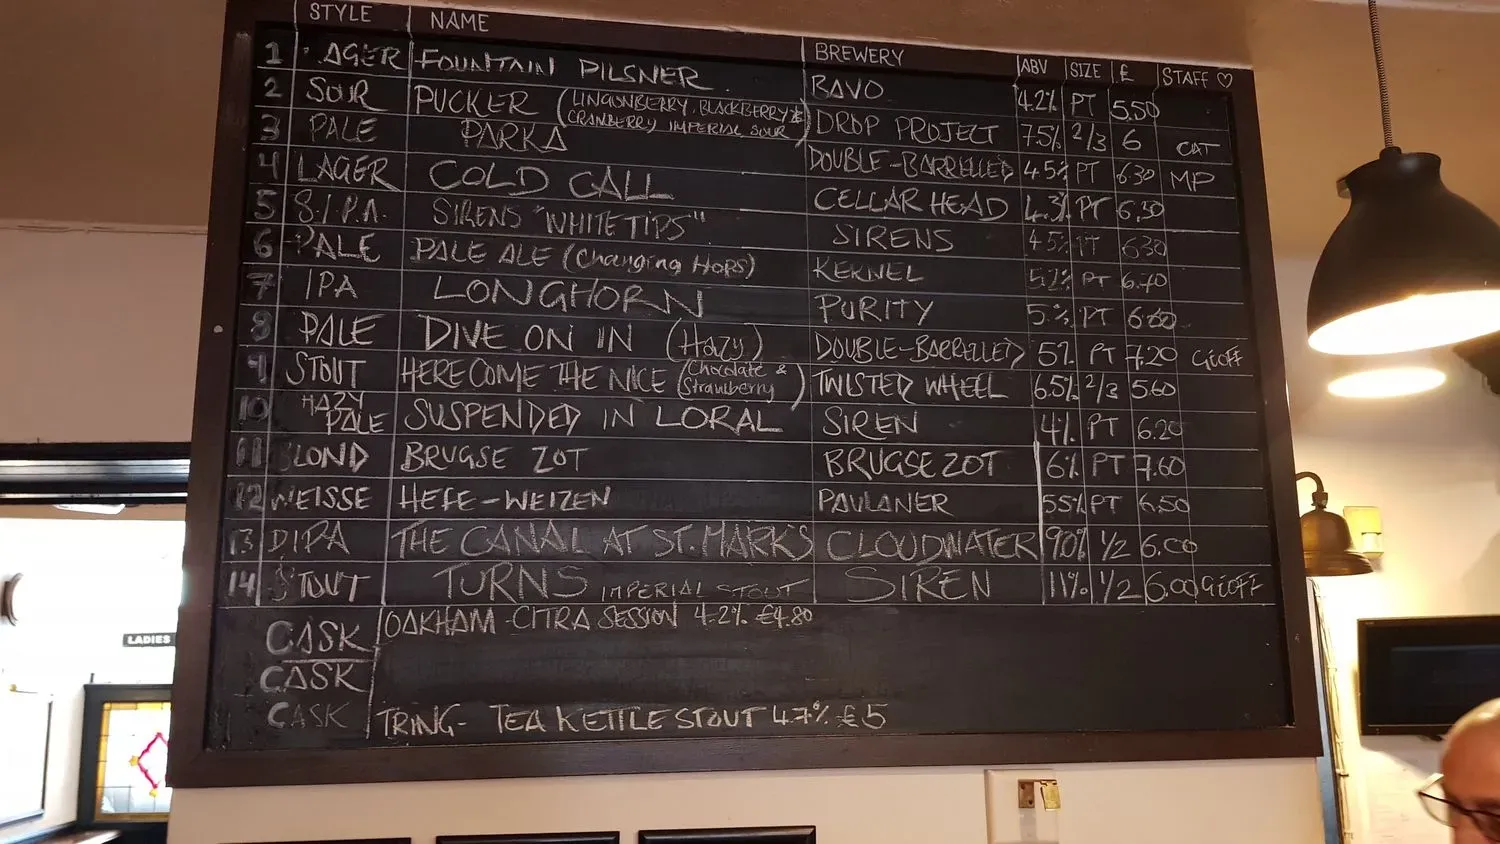 STYLE NAME BREWERY ABV SIZE £ STAFF ♡
1 LAGER FOUNTAIN PILSNER BAVO 4.2% PT 5.50
2 SOUR PUCKER (LINGONBERRY, BLACKBERRY & CRANBERRY IMPERIAL SOUR) DROP PROJECT 7.5% 2/3 6 CAT
3 PALE PARKA DOUBLE-BARRELLED 4.5% PT 6.30 MP
4 LAGER COLD CALL CELLAR HEAD 4.3% PT 6.30
5 S.I.P.A. SIRENS "WHITE TIPS" SIRENS 4.5% PT 6.30
6 PALE PALE ALE (Changing Hops) KERNEL 5.2% PT 6.40
7 IPA LONGHORN PURITY 5% PT 6.60
8 PALE DIVE ON IN (Hazy) DOUBLE-BARRELLED 5% PT 7.20 GEOFF
9 STOUT HERE COME THE NICE (Chocolate & Strawberry) TWISTED WHEEL 6.5% 2/3 5.60
10 HAZY PALE SUSPENDED IN LORAL SIREN 4% PT 6.20
11 BLOND BRUGSE ZOT BRUGSE ZOT 6% PT 7.60
12 WEISSE HEFE-WEIZEN PAULANER 55% PT 6.50
13 DIPA THE CANAL AT ST. MARK'S CLOUDWATER 90% 1/2 6.00
14 STOUT TURNS IMPERIAL STOUT SIREN 11% 1/2 6.00 GEOFF
CASK OAKHAM - CITRA SESSION 4.2% £4.80
CASK
CASK TRING- TEA KETTLE STOUT 4.7% £5
LADIES